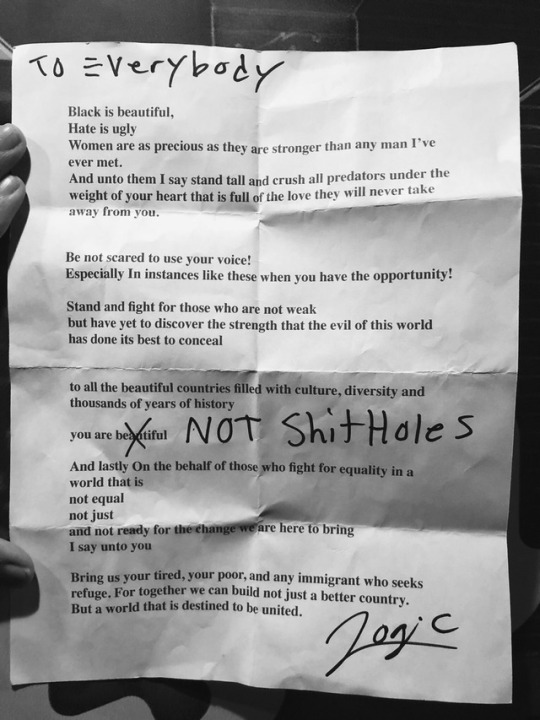 To Everybody
Black is beautiful,
Hate is ugly
Women are as precious as they are stronger than any man I've
ever met.
And unto them I say stand tall and crush all predators under the
weight of your heart that is full of the love they will never take
away from you.
Be not scared to use your voice!
Especially In instances like these when you have the opportunity!
Stand and fight for those who are not weak
but have yet to discover the strength that the evil of this world
has done its best to conceal
to all the beautiful countries filled with culture, diversity and
thousands of years of history
you are beautiful NOT ShitHoles
And lastly On the behalf of those who fight for equality in a
world that is
not equal
not just
and not ready for the change we are here to bring
I say unto you
Bring us your tired, your poor, and any immigrant who seeks
refuge. For together we can build not just a better country.
But a world that is destined to be united.
Logic